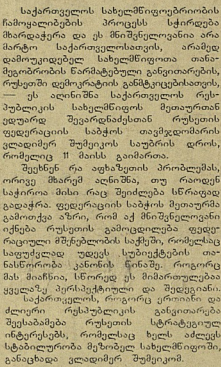 საქართველოს სახელმწიფოებრიობის
ჩამოყალიბების პროცესს სჭირდება
მხარდაჭერა და ეს მნიშვნელოვანია არა
მარტო საქართველოსათვის, არამედ
დამოუკიდებელ სახელმწიფოთა თანა-
მეგობრობის წარმატებული განვითარების,
რუსეთში დემოკრატიის განმტკიცებისათვის,
— ეს აღინიშნა საქართველოს რეს-
პუბლიკის სახელმწიფოს მეთაურთან
ედუარდ შევარდნაძესთან რუსეთის
ფედერაციის საბჭოს თავმჯდომარის
ვლადიმერ შუმეიკოს საუბრის დროს,
რომელიც 11 მაისს გაიმართა.
შეეხნენ რა აფხაზეთის პრობლემას,
ორივე მხარემ აღნიშნა, თუ რაოდენ
საჭიროა მისი რაც შეიძლება სწრაფად
გადაჭრა. ფედერაციის საბჭოს მეთაურმა
გამოთქვა აზრი, რომ აქ მნიშვნელოვანი
იქნება რუსეთის გამოცდილება ფედე-
რაციული მშენებლობის საქმეში, რომელსაც
საფუძვლად უდევს სუბიექტების თა-
ნასწორობა კანონის წინაშე. როგორც
მას მიაჩნია, სწორედ ეს მიმართულებაა
ყველაზე პერსპექტიული და შედეგიანი.
საქართველოს, როგორც ერთიანი და
ძლიერი რესპუბლიკის განვითარება
შეესაბამება რუსეთის სტრატეგიულ
ინტერესებს, რომელსაც ხელს აძლევს
სტაბილურობა მეზობელ სახელმწიფოში,
განაცხადა ვლადიმერ შუმეიკომ.